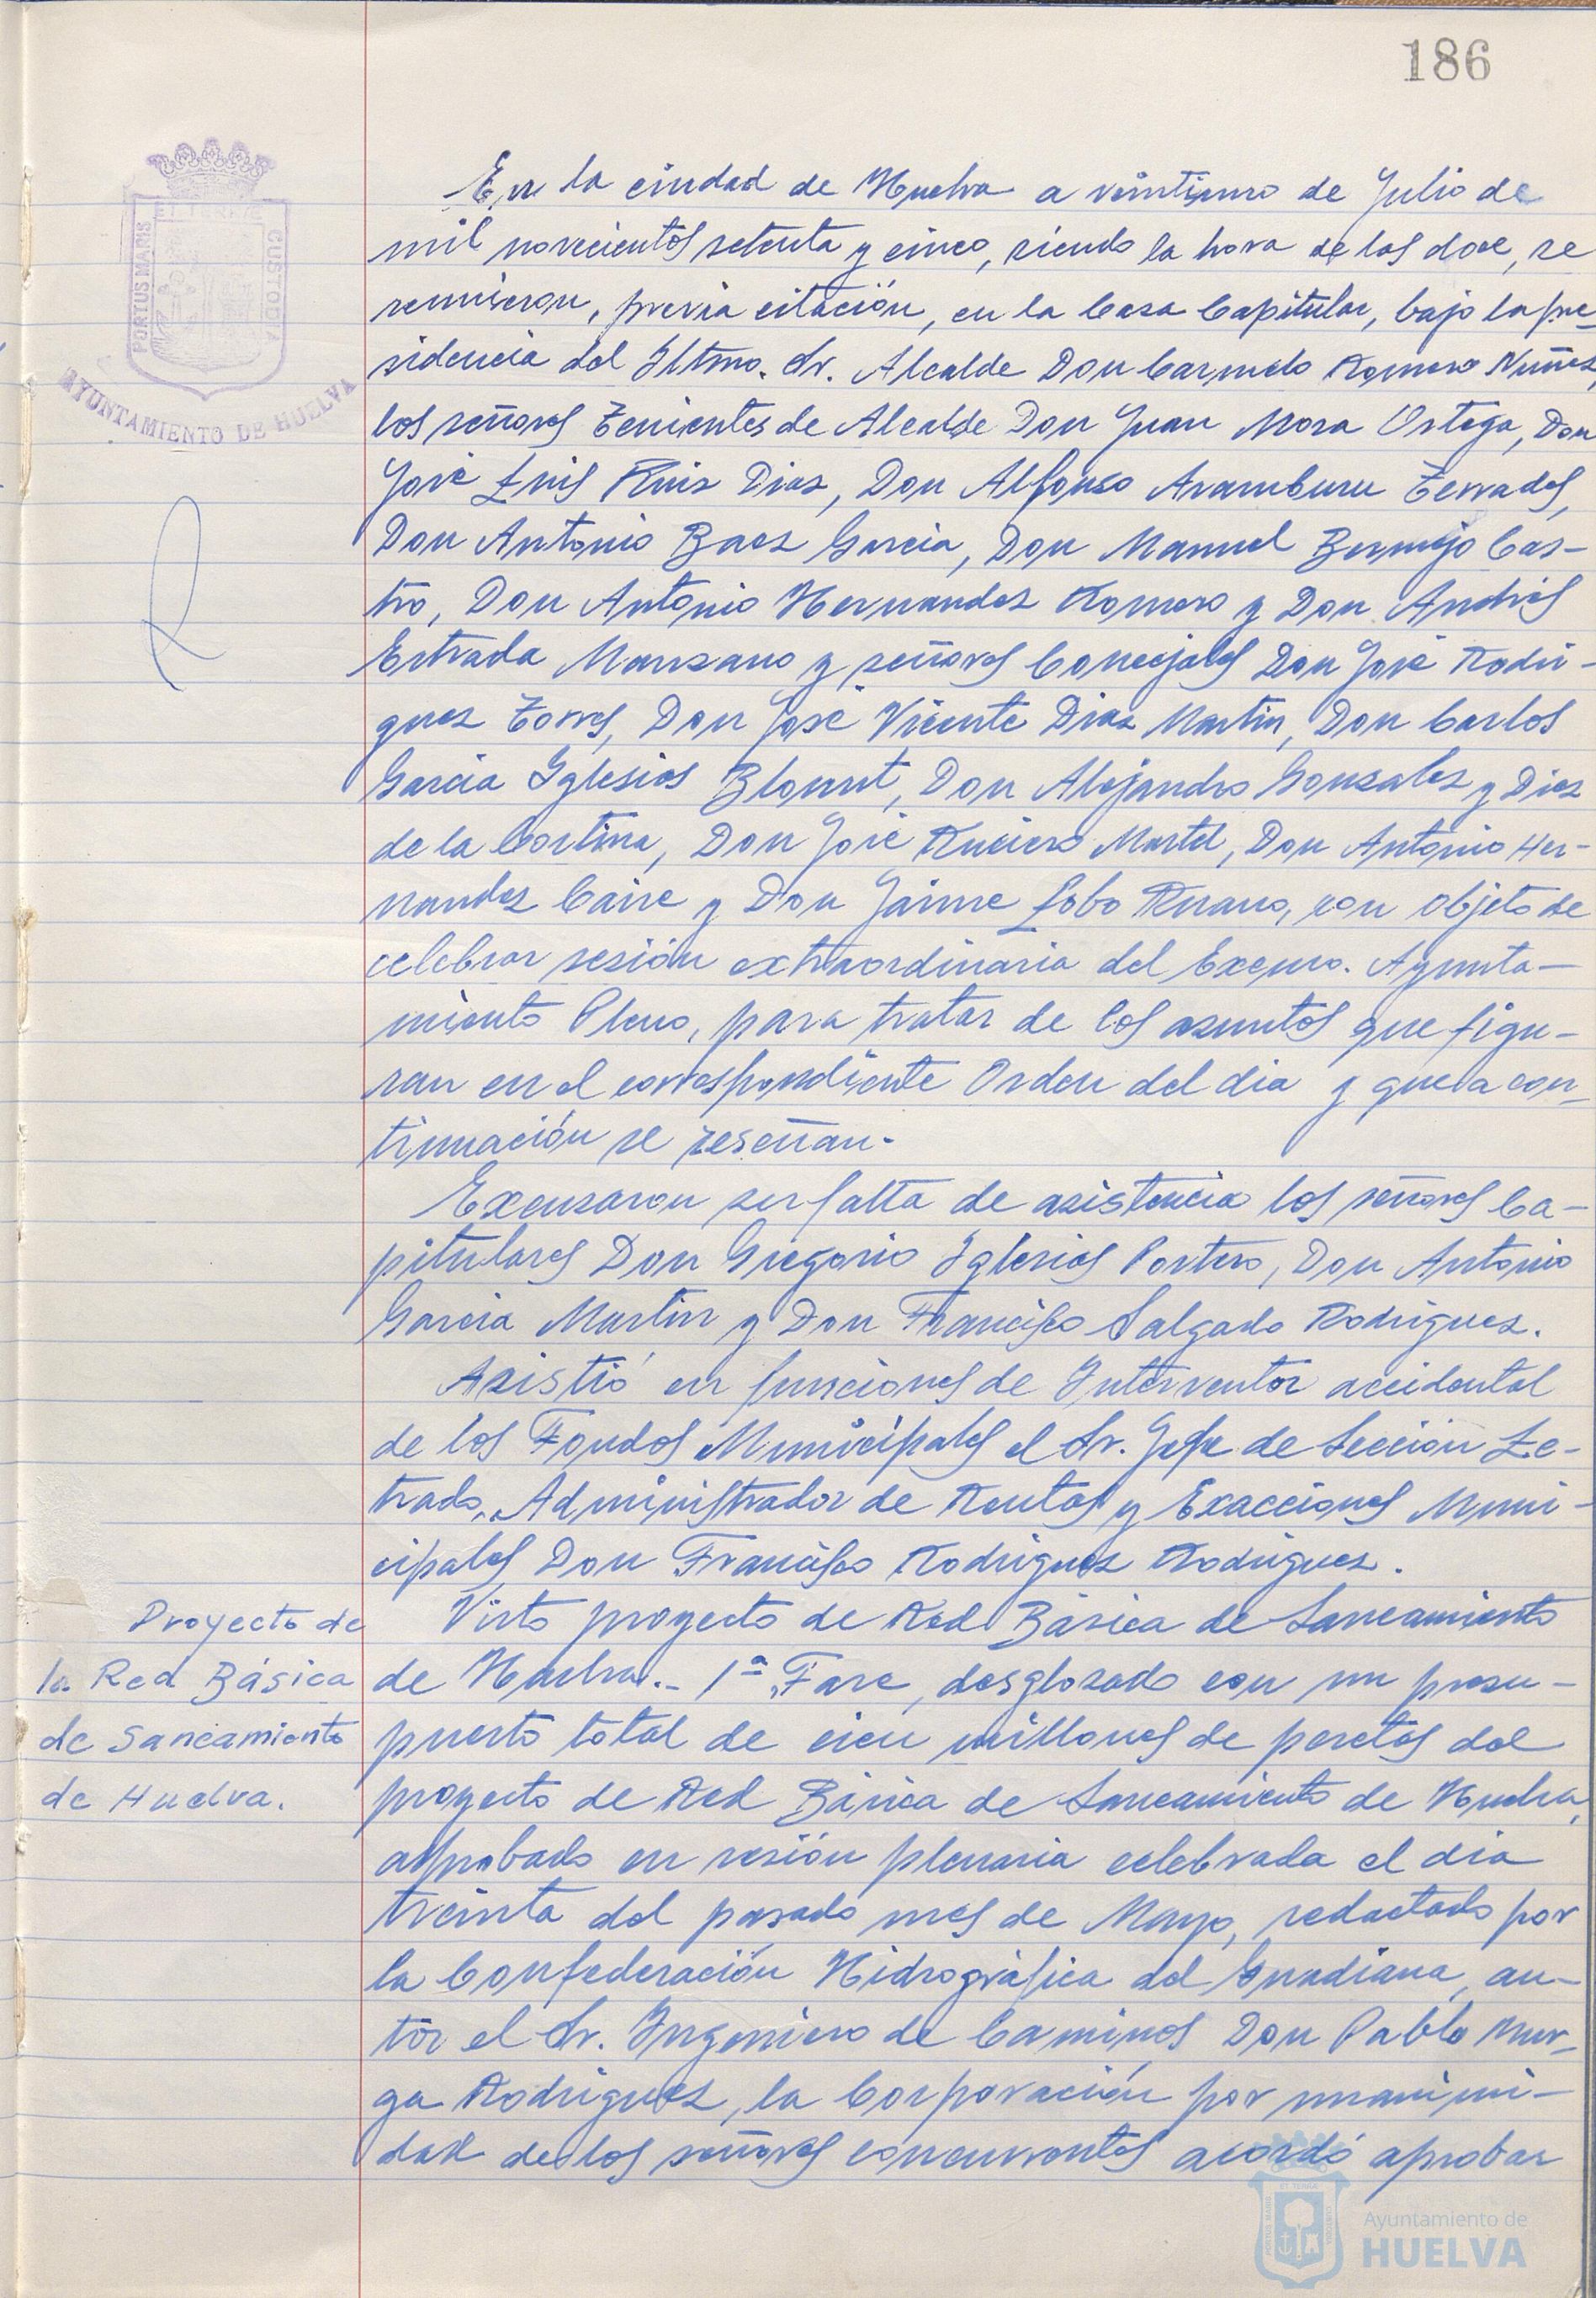 186
ET TERRAE
PORTUS MARIS
CUSTODIA
AYUNTAMIENTO DE HUELVA
En la ciudad de Huelva a veintiuno de Julio de
mil novecientos setenta y cinco, siendo la hora de las doce, se
reunieron, previa citación, en la Casa Capitular, bajo la pre-
sidencia del Iltmo. Sr. Alcalde Don Carmelo Romero Nuñez
los señores Tenientes de Alcalde Don Juan Mora Ortega, Don
José Luis Ruiz Diaz, Don Alfonso Aramburu Terrades,
Don Antonio Baez Garcia, Don Manuel Bermejo Cas-
tro, Don Antonio Hernandez Romero y Don Andrés
Estrada Manzano y señores Concejales Don José Rodri-
guez Torres, Don José Vicente Diaz Martin, Don Carlos
Garcia Iglesias Blomut, Don Alejandro Gonzalez y Diez
de la Cortina, Don José Ruciero Martel, Don Antonio Her-
nandez Caire y Don Jaime Lobo Ruano, con objeto de
celebrar sesión extraordinaria del Excmo. Ayunta-
miento Pleno, para tratar de los asuntos que figu-
ran en el correspondiente Orden del dia y que a con-
tinuación se reseñan.
Excusaron su falta de asistencia los señores Ca-
pitulares Don Gregorio Iglesias Portero, Don Antonio
Garcia Martin y Don Francisco Salgado Rodriguez.
Asistió en funciones de Interventor accidental
de los Fondos Municipales el Sr. Jefe de Sección Le-
trado, Administrador de Rentas y Exacciones Muni-
cipales Don Francisco Rodriguez Rodriguez.
Proyecto de
la Red Básica
de Saneamiento
de Huelva.
Visto proyecto de Red Básica de Saneamiento
de Huelva.- 1ª Fase, desglosado con un presu-
puesto total de cien millones de pesetas del
proyecto de Red Básica de Saneamiento de Huelva,
aprobado en sesión plenaria celebrada el dia
treinta del pasado mes de Mayo, redactado por
la Confederación Hidrográfica del Guadiana, au-
tor el Sr. Ingeniero de Caminos Don Pablo Mur-
ga Rodriguez, la Corporación por unanimi-
dad de los señores concurrentes acordó aprobar
Ayuntamiento de
HUELVA